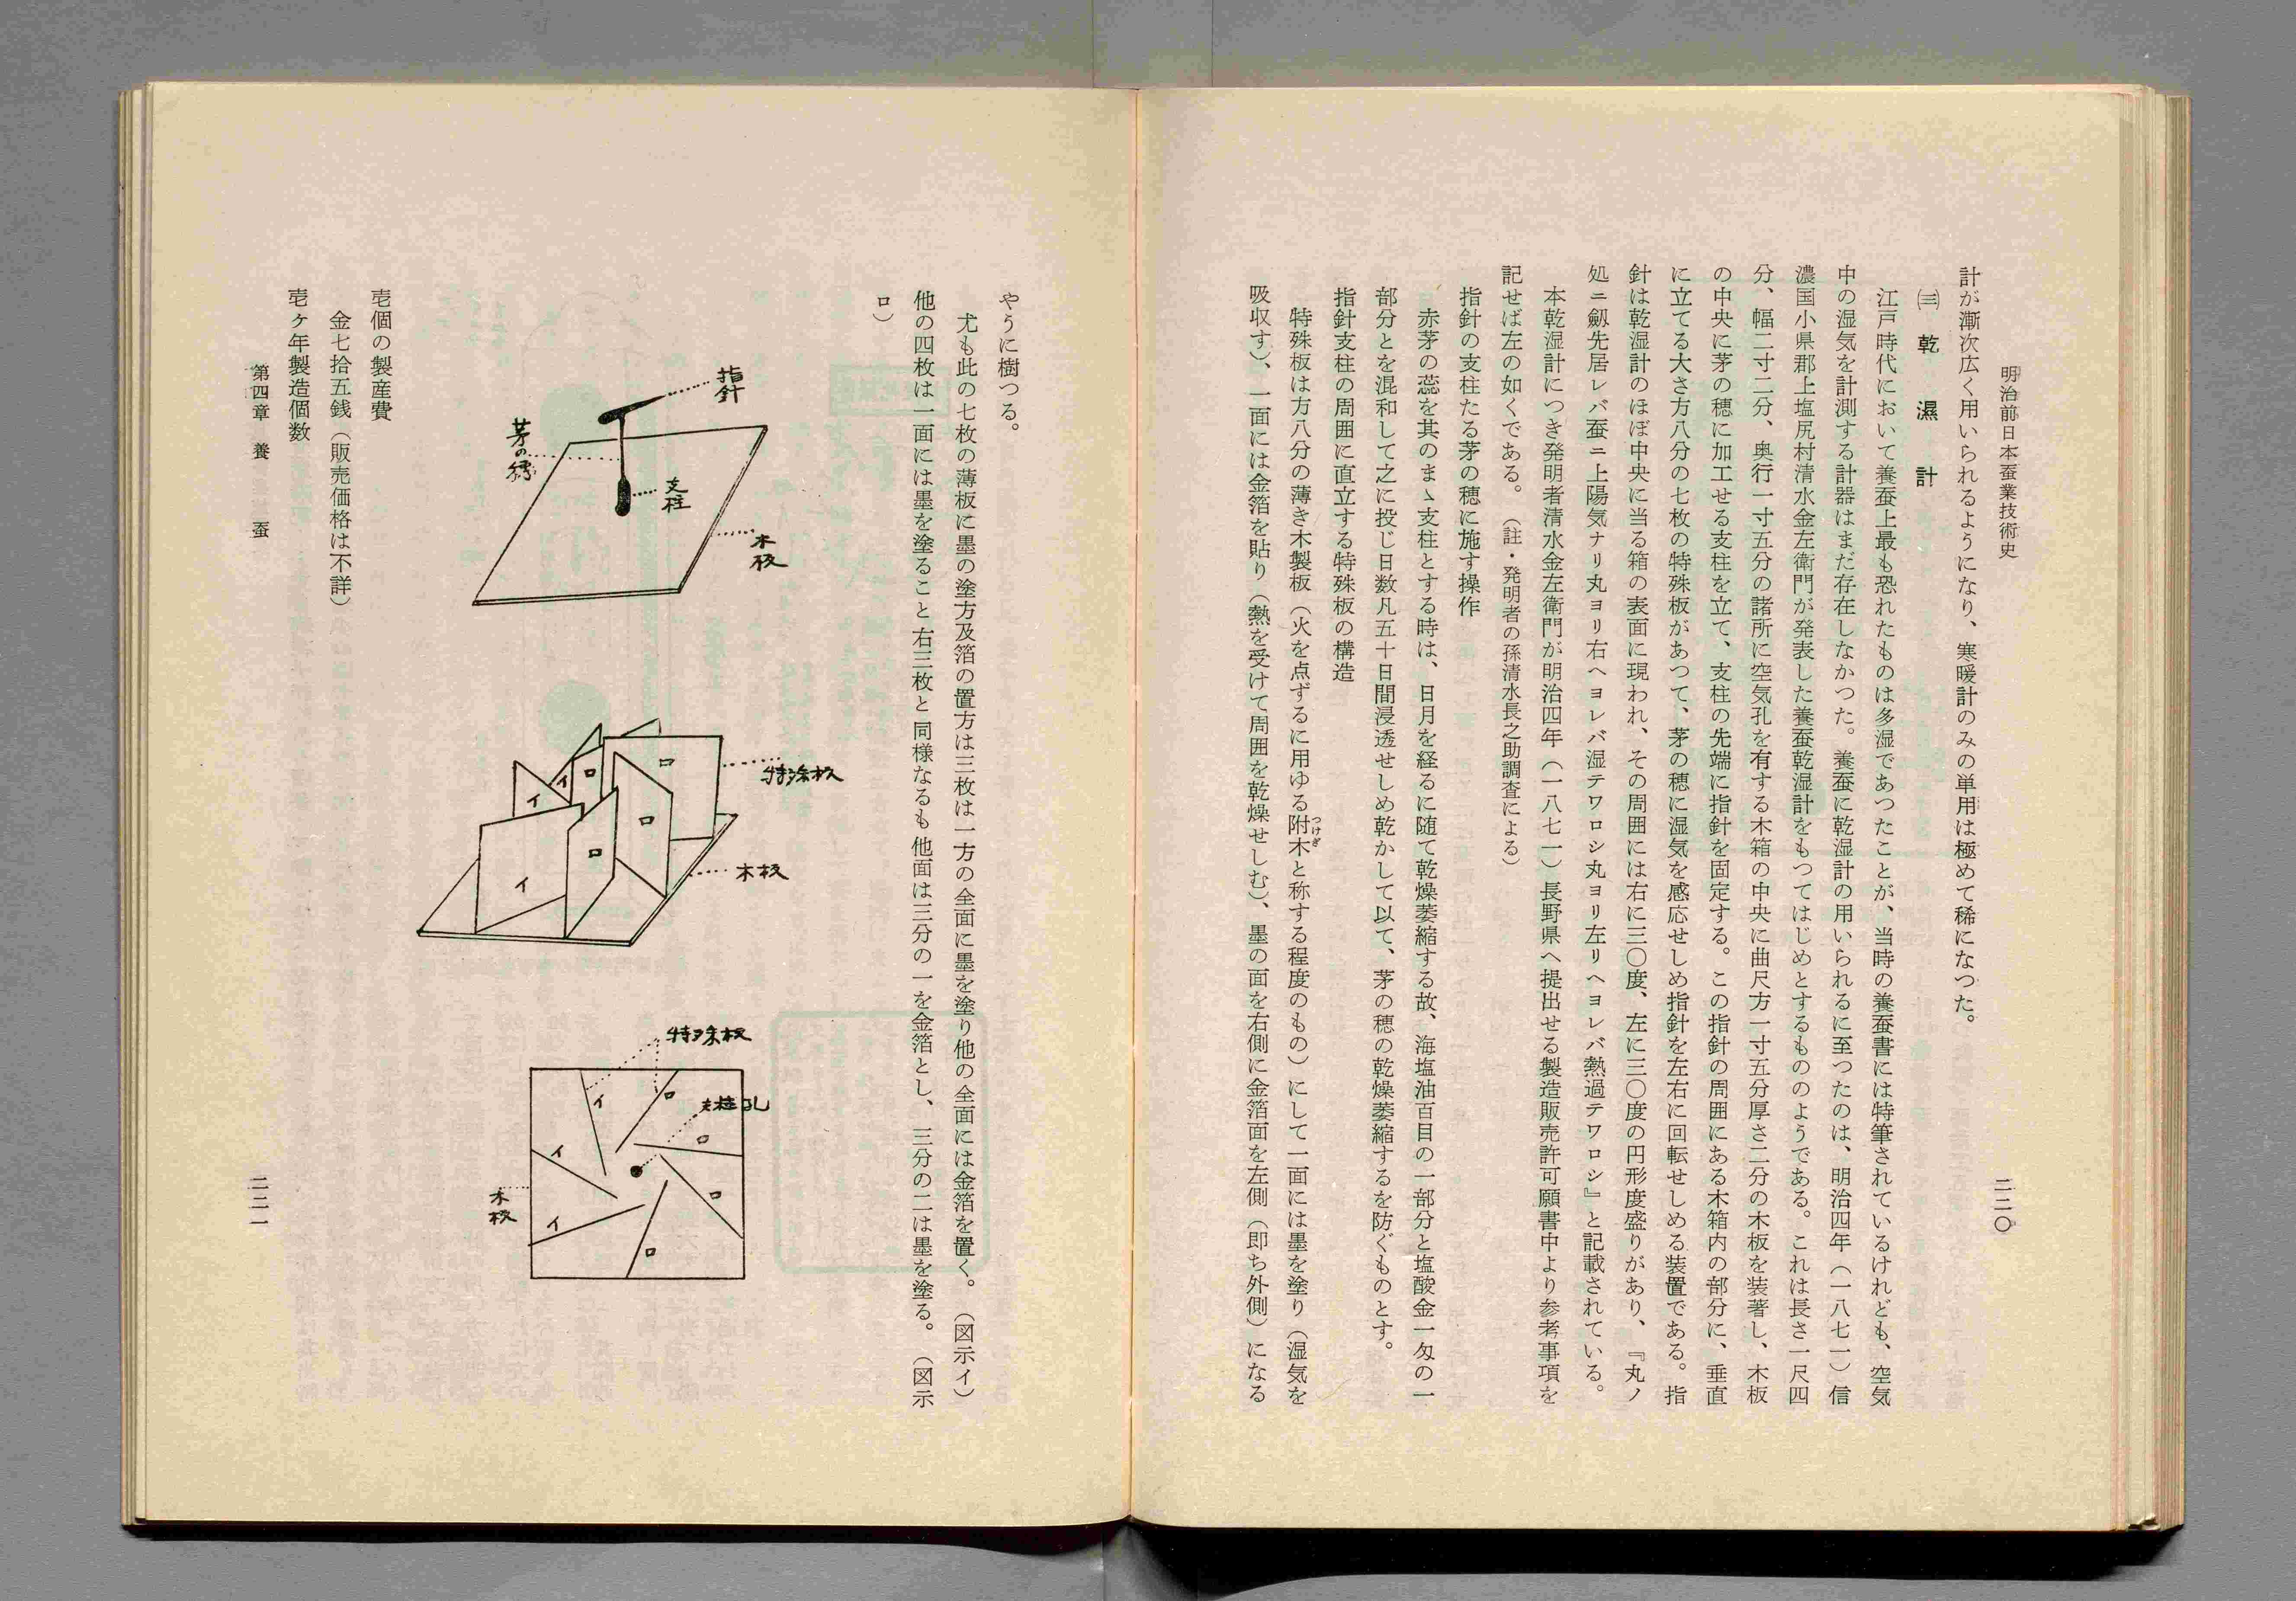 明治前日本蚕業技術史
二二〇
計が漸次広く用いられるようになり、寒暖計のみの単用は極めて稀になつた。
㈢ 乾濕計
江戸時代において養蚕上最も恐れたものは多湿であつたことが、当時の養蚕書には特筆されているけれども、空気
中の湿気を計測する計器はまだ存在しなかつた。養蚕に乾湿計の用いられるに至つたのは、明治四年（一八七一）信
濃国小県郡上塩尻村清水金左衛門が発表した養蚕乾湿計をもつてはじめとするもののようである。これは長さ一尺四
分、幅二寸二分、奥行一寸五分の諸所に空気孔を有する木箱の中央に曲尺方一寸五分厚さ二分の木板を装著し、木板
の中央に茅の穂に加工せる支柱を立て、支柱の先端に指針を固定する。この指針の周囲にある木箱内の部分に、垂直
に立てる大さ方八分の七枚の特殊板があつて、茅の穂に湿気を感応せしめ指針を左右に回転せしめる装置である。指
針は乾湿計のほぼ中央に当る箱の表面に現われ、その周囲には右に三〇度、左に三〇度の円形度盛りがあり、『丸ノ
処ニ劔先居レバ蚕ニ上陽気ナリ丸ヨリ右ヘヨレバ湿テワロシ丸ヨリ左リヘヨレバ熱過テワロシ』と記載されている。
本乾湿計につき発明者清水金左衛門が明治四年（一八七一）長野県へ提出せる製造販売許可願書中より参考事項を
記せば左の如くである。（註・発明者の孫清水長之助調査による）
指針の支柱たる茅の穂に施す操作
赤茅の蕊を其のまゝ支柱とする時は、日月を経るに随て乾燥萎縮する故、海塩油百目の一部分と塩酸金一匁の一
部分とを混和して之に投じ日数凡五十日間浸透せしめ乾かして以て、茅の穂の乾燥萎縮するを防ぐものとす。
指針支柱の周囲に直立する特殊板の構造
特殊板は方八分の薄き木製板（火を点ずるに用ゆる附木つけぎと称する程度のもの）にして一面には墨を塗り（湿気を
吸収す）、一面には金箔を貼り（熱を受けて周囲を乾燥せしむ）、墨の面を右側に金箔面を左側（即ち外側）になる
やうに樹つる。
尤も此の七枚の薄板に墨の塗方及箔の置方は三枚は一方の全面に墨を塗り他の全面には金箔を置く。（図示イ）
他の四枚は一面には墨を塗ること右三枚と同様なるも他面は三分の一を金箔とし、三分の二は墨を塗る。（図示
ロ）
指針
茅の穂
支柱
木板
特殊板
イ
イ
ロ
ロ
ロ
イ
ロ
木板
特殊板
支柱孔
イ
ロ
ロ
イ
ロ
イ
ロ
木板
壱個の製産費
金七拾五銭（販売価格は不詳）
壱ヶ年製造個数
第四章 養蚕
二二一